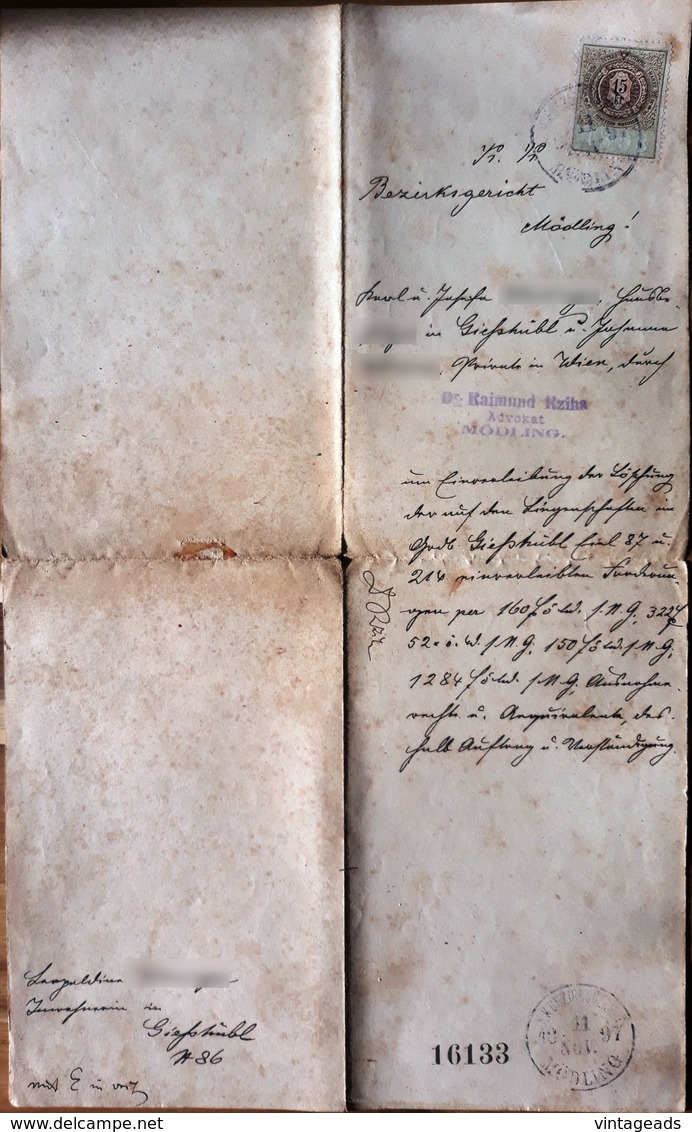 15
K. K.
Bezirksgericht
Mödling!
Karl u. Josefa Hausbe-
in Gießhübl u. Johanna
Private in Wien, durch
Dr. Raimund Rziha
Advokat
MÖDLING.
um Einverleibung der Löschung
der auf den Liegenschaften in
Grdb. Gießhübl fiel 87 u.
216 einverleibten Forderun-
gen per 160 f ö. W. s. N. G., 322 f
52 x ö. W. s. N. G., 150 f ö. W. s. N. G.,
1284 f ö. W. s. N. G., Ausnahms-
rechte u. Aequivalente, des-
halb Auftrag u. Verständigung.
Leopoldine
Inwohnerin in
Gießhübl
№ 86
16133
11
NOV. 97
MÖDLING
vintageads